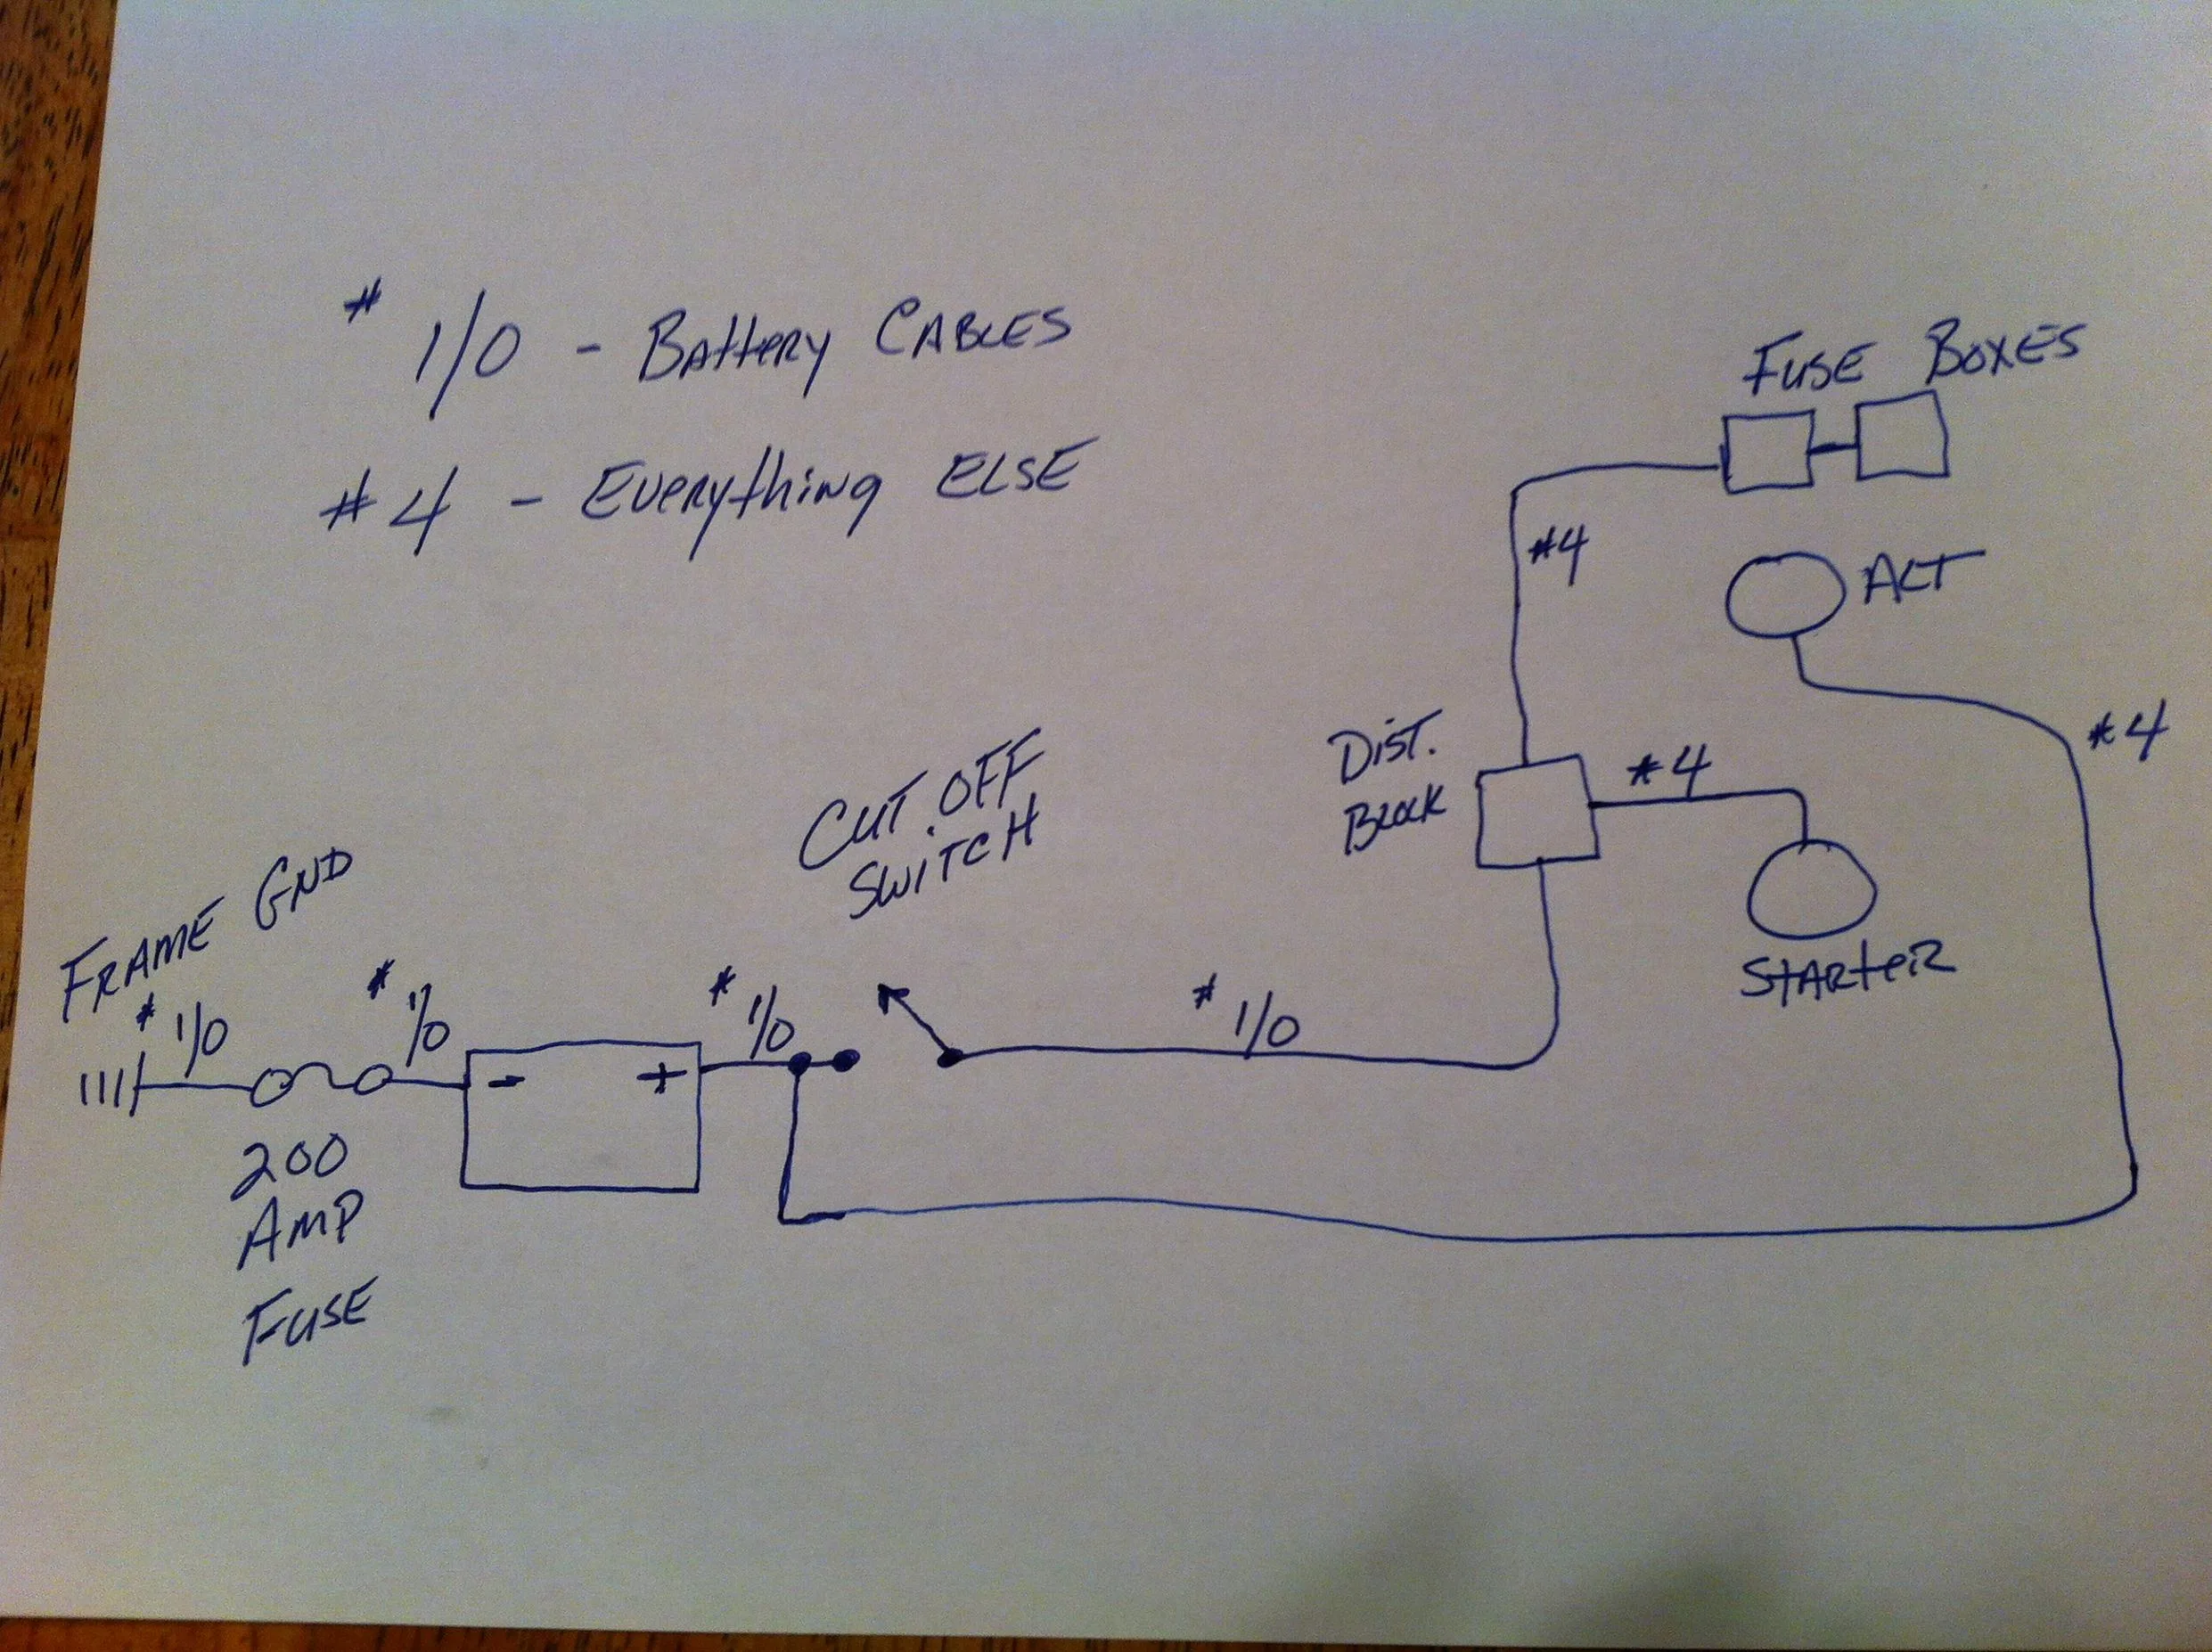 # 1/0 - Battery CABLES
#4 - Everything ELSE
FUSE BOXES
#4
ALT
#4
Dist.
Block
#4
STARTER
CUT OFF
SWITCH
FRAME GND
# 1/0
# 1/0
- +
# 1/0
# 1/0
200
AMP
FUSE